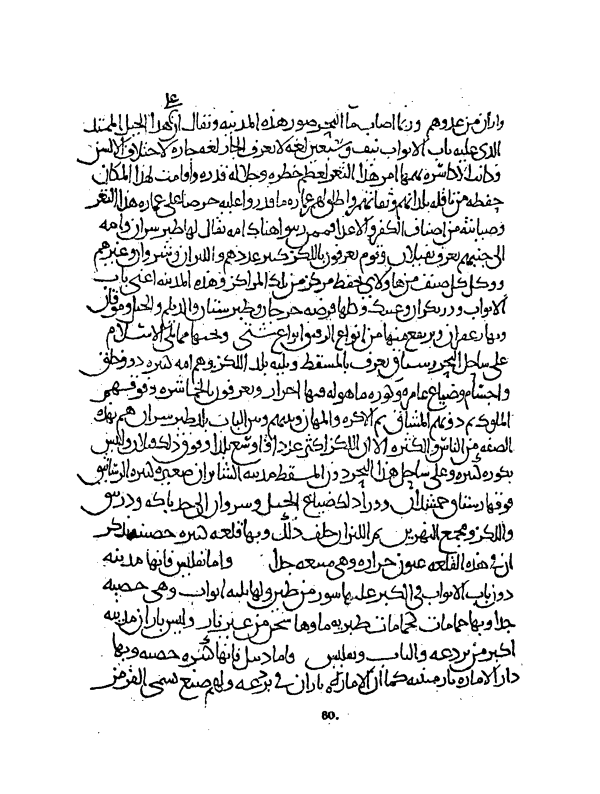 علي
واران من عدوهم وربما اصاب ما البحر صور هذه المدينه ويقال ان هذا الجبل الممتد
الذي عليه باب الابواب نيف وسبعين لغه لا يعرف الجار لغه جاره لاختلاف الالسن
وكانت الاكاسره يهمها امر هذا الثغر لعظم خطره وجلاله قدره واقامت لهذا المكان
حفظه من ناقله بلدانهم وثقاتهم واطلق لهم عماره ما قدروا عليه حرصا على عماره هذا الثغر
وصيانته من اصناف الكفر والاعدا فممن هناك امه يقال لها طبرسران وامه
الى جنبهم تعرف وقوم يعرفون باللكز كثير عددهم والليران وشروان وغيرهم
ووكل كل صنف من هاولاي بحفظ مركز من تلك المراكز وهذه المدينه اعني باب
الابواب ولها فرضه جرجان وطبرستان والديلم والجبل وموقان
وبها زعفران ويرتفع منها من انواع الرقيق انواع شتى وبجنبها مما يلي الاسلام
على ساحل البحر رستاق يعرف بالمسقط ويليه بلد اللكز وهم امه كثيره ذوو خلق
واجسام وضياع عامره وكوره ماهوله فيها احرار ويعرفون بالخماشره وفوقهم
الملوك ثم دونهم المشاق ثم الاكره والمهان وبينهم وبين الباب بلاد طبرسران هم بهذه
الصفه من الناس والكثره الا ان اللكز اكثر عددا واوسع بلدا وفوق ذلك فيلان وليس
بكوره كثيره وعلى ساحل هذا البحر دون المسقط مدينه الشابران صغيره كثيره الرساتيق
فوقها رستاق وورا ذلك ضياع الجبل وسروان الى حد باكه ودرسو
واللكز ومجمع النهرين ثم الليزان خلف ذلك وبها قلعه كثيره حصينه يذكر
ان في هذه القلعه عيون جراره وهي منيعه جدا واما تفليس فانها مدينه
دون باب الابواب في الكبر عليها سور من طين ولها ثلثه ابواب وهي خصبه
جدا وبها حمامات كحمامات طبريه ماوها سخن من غير نار وليس باران مدينه
اكبر من بردعه والباب وتفليس واما دبيل فانها كبيره حصينه وبها
دار الاماره بارمينيه كما ان الاماره باران في بردعه ولهم صبغ تسمى القرمز
60.